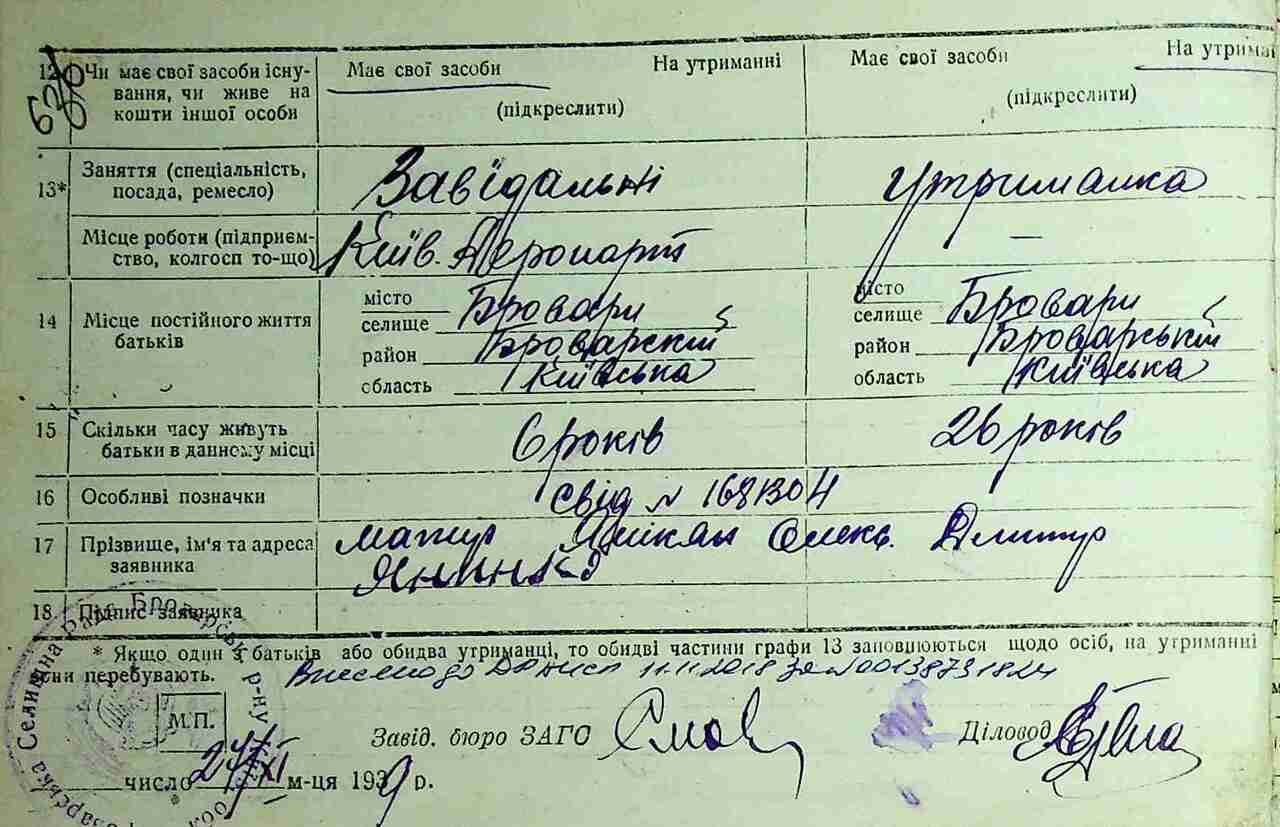 12 Чи має свої засоби існу-
вання, чи живе на
кошти іншої особи
Має свої засоби На утриманні
(підкреслити)
Має свої засоби На утрима
(підкреслити)
13* Заняття (спеціальність,
посада, ремесло)
Завідальні
утриманка
Місце роботи (підприєм-
ство, колгосп то-що)
Київ. Аеропорт
—
14 Місце постійного життя
батьків
місто
селище Бровари
район Броварский
область Київська
місто
селище Бровари
район Броварський
область Київська
15 Скільки часу живуть
батьки в данному місці
6 років
26 років
16 Особливі позначки
свід № 1681304
17 Прізвище, ім'я та адреса
заявника
матир Олекс. Дмитр
18 Підпис заявника
* Якщо один з батьків або обидва утриманці, то обидві частини графи 13 заповнюються щодо осіб, на утриманні
яких вони перебувають.
Внесено до 11.11.2018 за №00138731824
М.П.
Завід. бюро ЗАГС
Діловод
число 24/XI м-ця 1939 р.
Селищна Рада Броварськ. р-ну